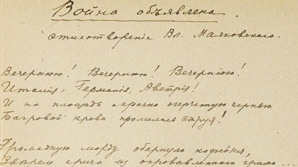 Война объявлена.
стихотворенiе Вл. Маяковскаго.
Вечернюю! Вечернюю! Вечернюю!
Италiя! Германiя! Австрiя!
И на площадь мрачно очерченную чернью
Багровой крови пролилась струя!
морду окровавила кофейня,
Зверьим криком